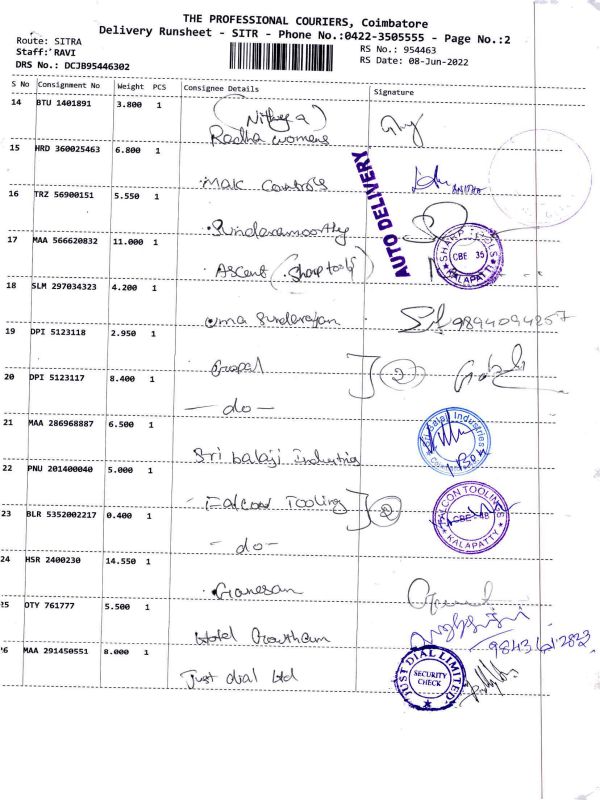 THE PROFESSIONAL COURIERS, Coimbatore
Delivery Runsheet - SITR - Phone No.:0422-3505555 - Page No.:2
Route: SITRA
Staff: RAVI
DRS No.: DCJB95446302
RS No.: 954463
RS Date: 08-Jun-2022
S No Consignment No Weight PCS Consignee Details Signature
14 BTU 1401891 3.800 1 (Nithya) Radha womens
15 HRD 360025463 6.800 1 Mak Controls
AUTO DELIVERY
16 TRZ 56900151 5.550 1 Sunderamoorthy
17 MAA 566620832 11.000 1 Ascent (Sharp tools)
SHARP TOOLS CBE 35 KALAPATTI
18 SLM 297034323 4.200 1 Uma Sunderajan 9894094257
19 DPI 5123118 2.950 1 Gopal
2
20 DPI 5123117 8.400 1 - do -
21 MAA 286968887 6.500 1 Sri balaji Industries
Sri Balaji Industries
22 PNU 201400040 5.000 1 - Falcon Tooling
2
FALCON TOOLINGS CBE-48 KALAPATTY
23 BLR 5352002217 0.400 1 - do -
24 HSR 2400230 14.550 1 Ganesan
25 OTY 761777 5.500 1 Hotel Gowtham
26 MAA 291450551 8.000 1 Just dial Ltd
JUST DIAL LIMITED SECURITY CHECK